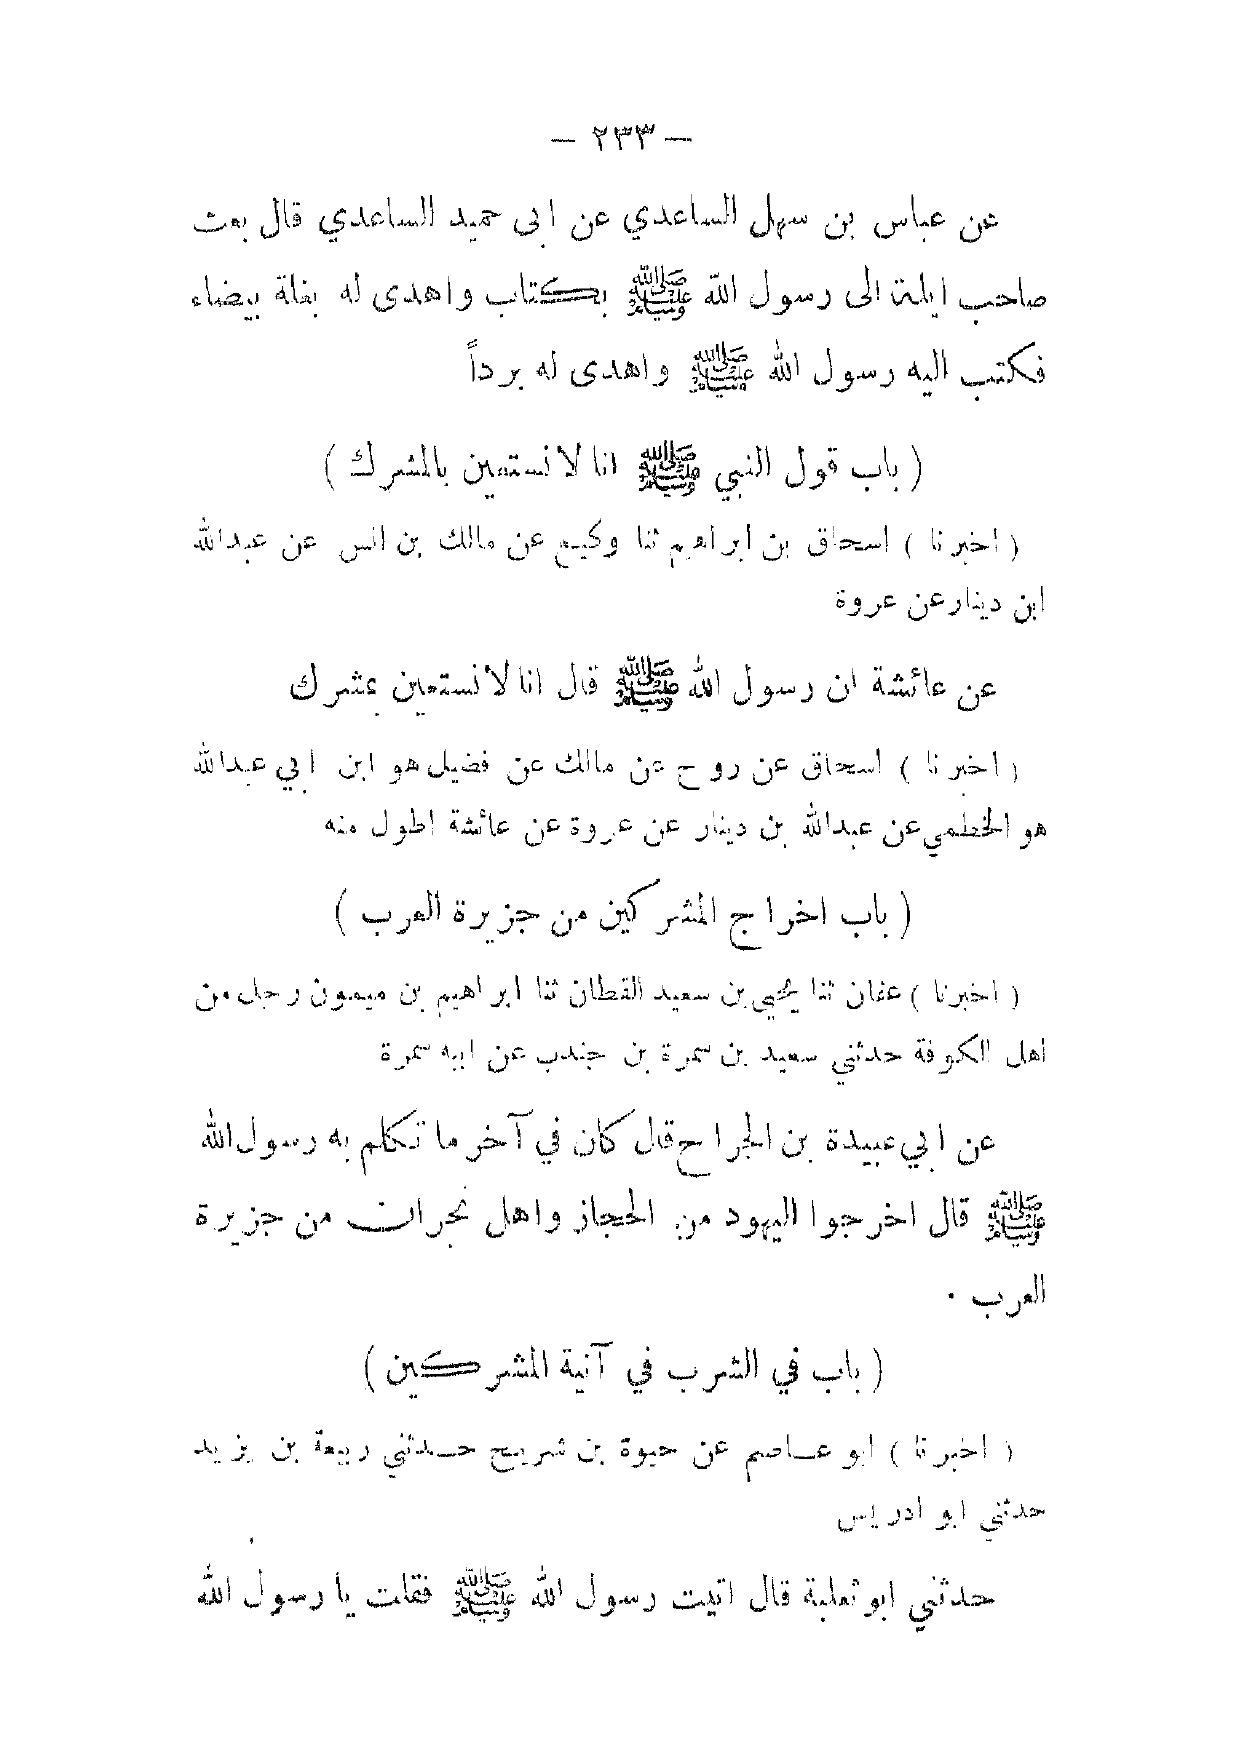 — ٢٣٣ —
عن عباس بن سهل الساعدي عن ابى حميد الساعدي قال بعث
صاحب ايلة الى رسول الله ﷺ بكتاب واهدى له بغلة بيضاء
فكتب اليه رسول الله ﷺ واهدى له برداً
( باب قول النبي ﷺ انا لا نستعين بالمشرك )
( اخبرنا ) اسحاق بن ابراهيم ثنا وكيع عن مالك بن انس عن عبدالله
ابن دينار عن عروة
عن عائشة ان رسول الله ﷺ قال انا لا نستعين بمشرك
( اخبرنا ) اسحاق عن روح عن مالك عن فضيل هو ابن ابي عبدالله
هو الخطمي عن عبدالله بن دينار عن عروة عن عائشة اطول منه
( باب اخراج المشركين من جزيرة العرب )
( اخبرنا ) عفان ثنا يحيى بن سعيد القطان ثنا ابراهيم بن ميمون رجل من
اهل الكوفة حدثني سعيد بن سمرة بن جندب عن ابيه سمرة
عن ابي عبيدة بن الجراح قال كان في آخر ما تكلم به رسول الله
ﷺ قال اخرجوا اليهود من الحجاز واهل نجران من جزيرة
العرب .
( باب في الشرب في آنية المشركين )
( اخبرنا ) ابو عاصم عن حيوة بن شريح حدثني ربيعة بن يزيد
حدثني ابو ادريس
حدثني ابو ثعلبة قال اتيت رسول الله ﷺ فقلت يا رسول الله